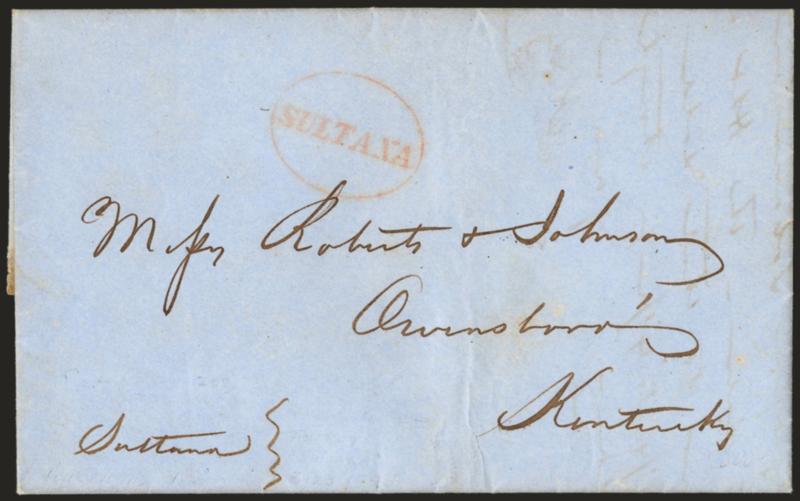 SULTANA
Messrs Roberts & Johnson
Owensboro'
Kentucky
Sultana